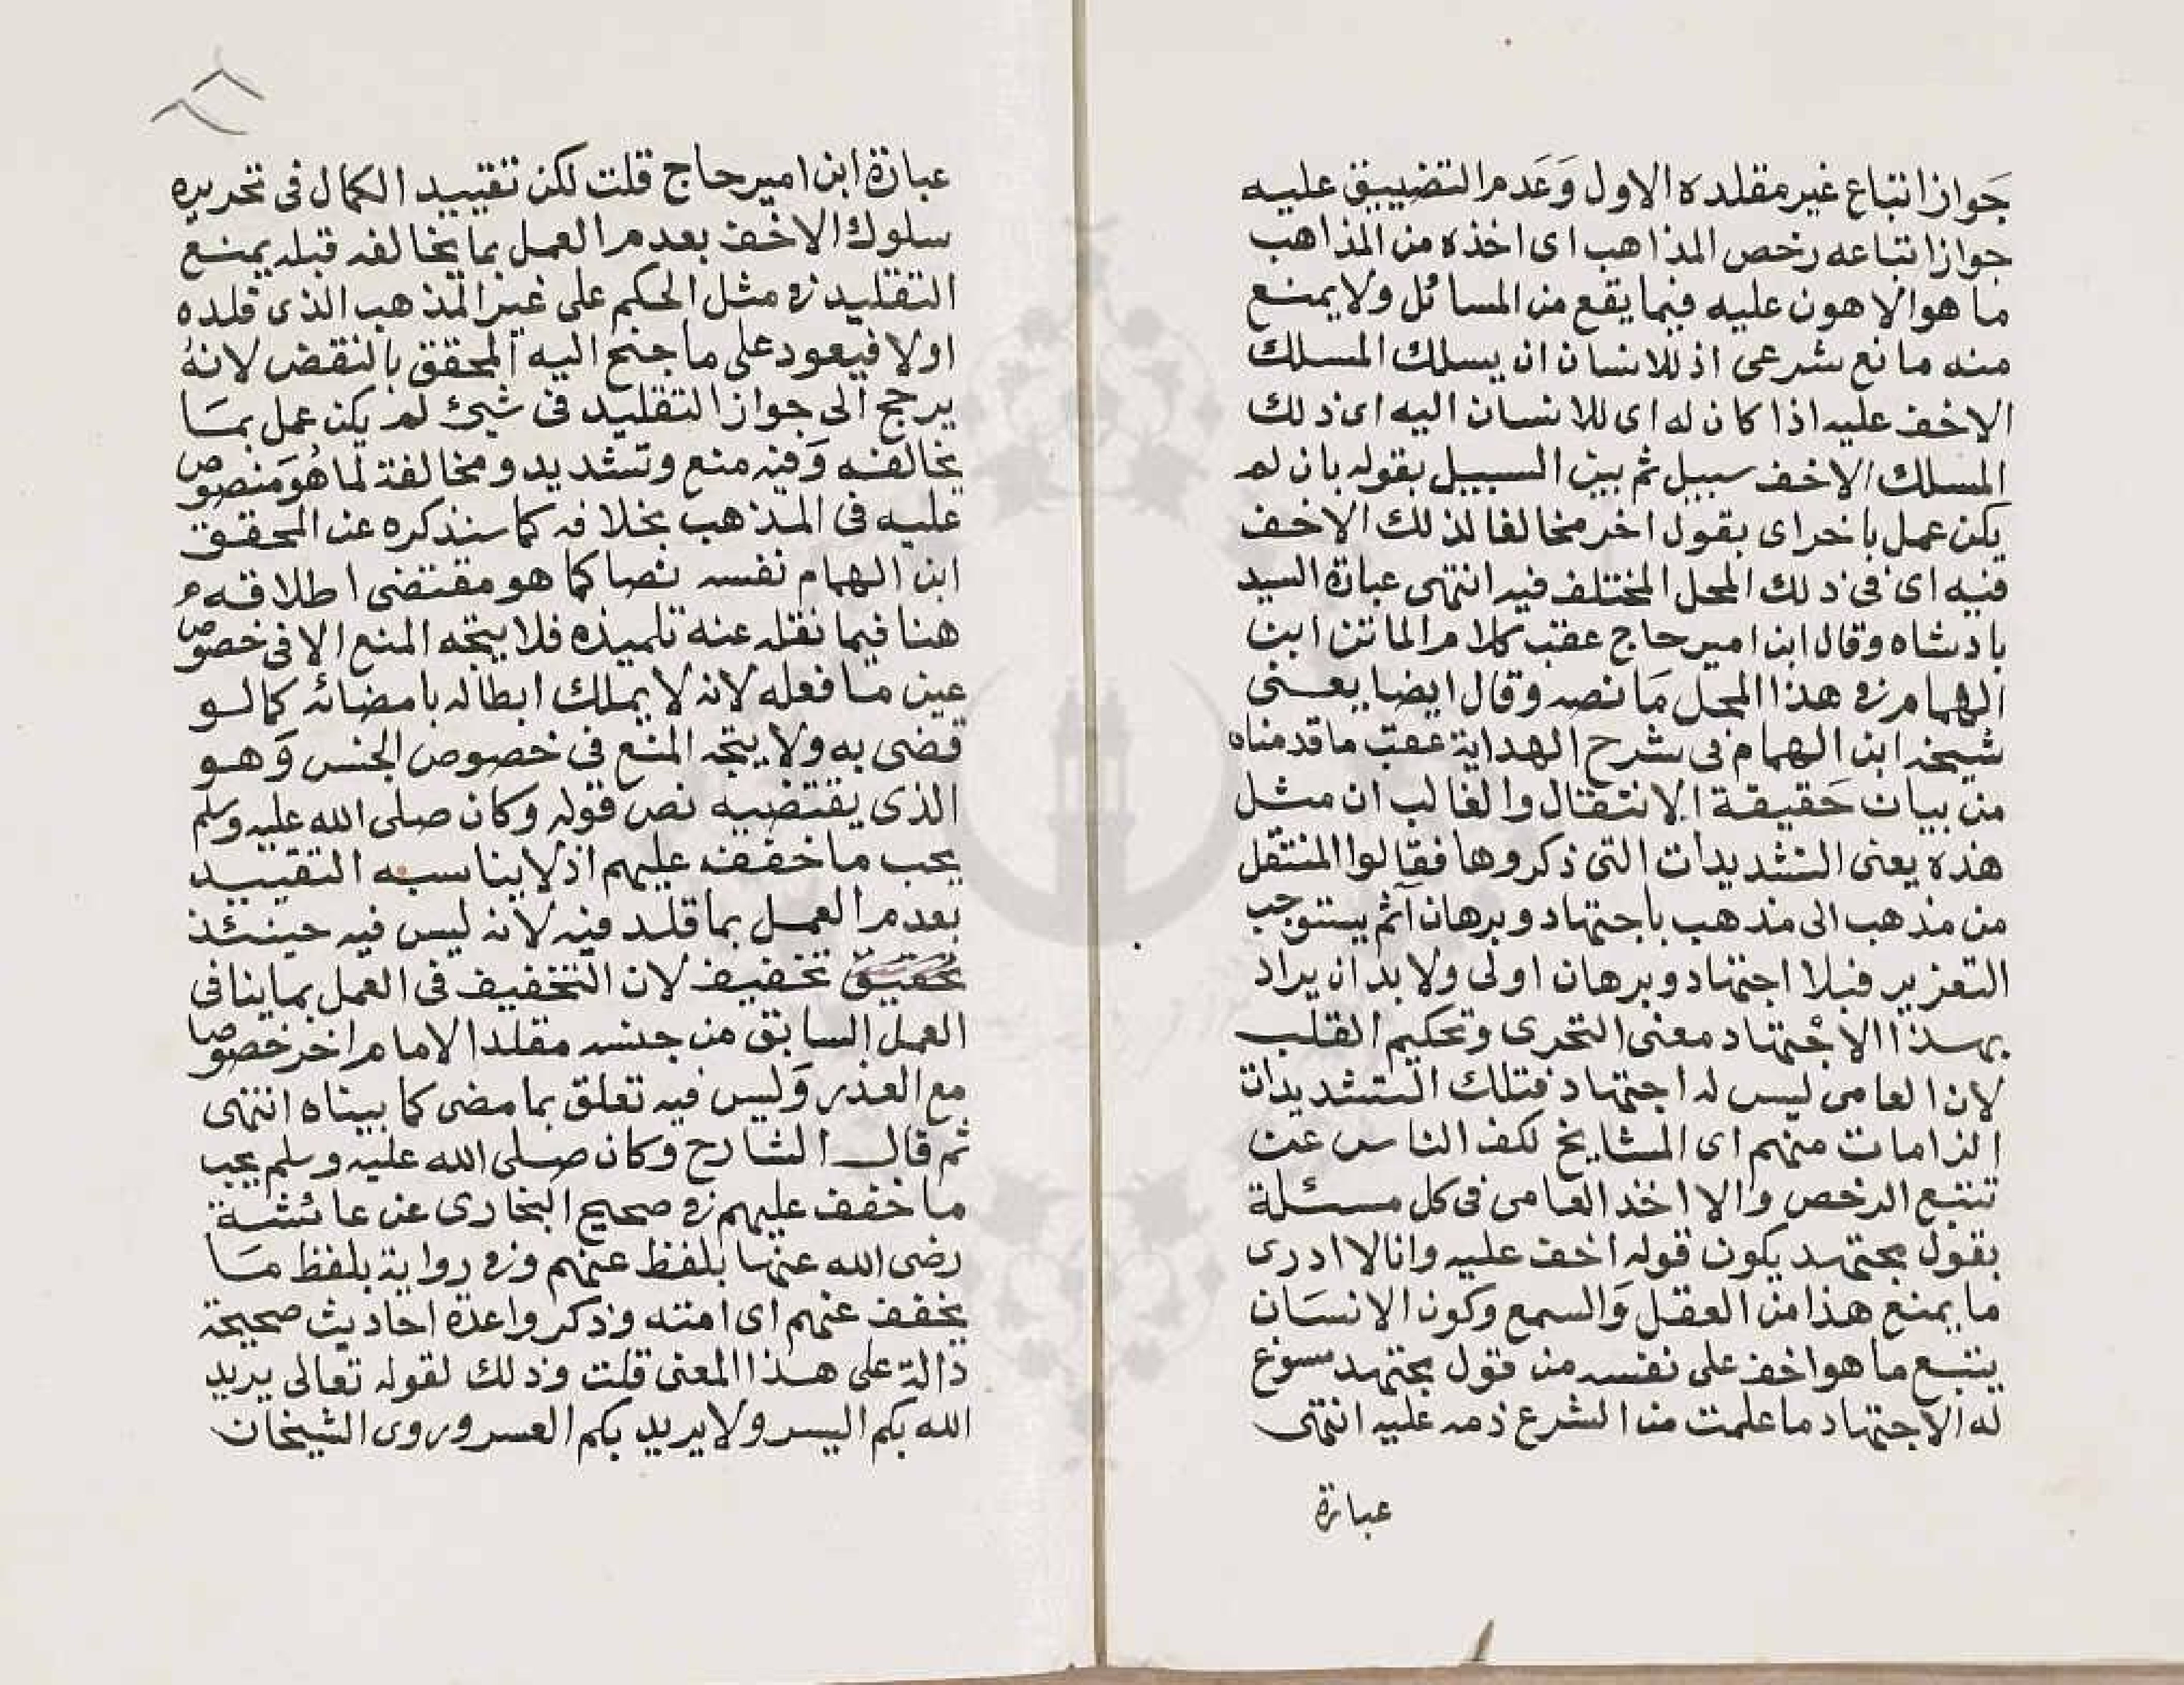 جَواز اتباع غير مقلده الاول وَعَدم التضييق عليه
جواز اتباعه رخص المذاهب اى اخذه من المذاهب
ما هو الاهون عليه فيما يقع من المسائل ولا يمنع
منه مانع شرعى اذ للانسان ان يسلك المسلك
الاخف عليه اذا كان له اى للانسان اليه اى ذلك
المسلك الاخف سبيل ثم بين السبيل بقوله بان لم
يكن عمل باخر اى بقول اخر مخالفا لذلك الاخف
فيه اى فى ذلك المحل المختلف فيه انتهى عبارة السيد
بادشاه وقال ابن امير حاج عقب كلام الماتن ابن
الهمام فى هذا المحل مَا نصه وقال ايضا يعنى
شيخه ابن الهمام فى شرح الهداية عقب ما قدمناه
من بيان حَقيقة الانتقال والغالب ان مثل
هذه يعنى التشديدات التى ذكروها فقالوا المنتقل
من مذهب الى مذهب باجتهاد وبرهان آثم يستوجب
التعزير فبلا اجتهاد وبرهان اولى ولا بد ان يراد
بهذا الاجتهاد معنى التحرى وتحكيم القلب
لان العامى ليس له اجتهاد فتلك التشديدات
الزامات منهم اى المشايخ لكف الناس عن
تتبع الرخص والا اخذ العامى فى كل مسئلة
بقول مجتهد يكون قوله اخف عليه وانا لا ادرى
ما يمنع هذا من العقل وَالسمع وكون الانسَان
يتبع ما هو اخف على نفسه من قول مجتهد مسوغ
له الاجتهاد ما علمت من الشرع ذمه عليه انتهى
عبارة
عبارة ابن امير حاج قلت لكن تقييد الكمال فى تحريره
سلوك الاخف بعدم العمل بما يخالفه قبله يمنع
التقليد فى مثل الحكم على غير المذهب الذى قلده
اولا فيعود على ما جنح اليه المحقق بالنقض لانه
يرجح الى جواز التقليد فى شيئ لم يكن عمل بمَا
يخالفه وَفيه منع وتشديد ومخالفة لما هُوَ منصوص
عليه فى المذهب بخلافه كما سنذكره عن المحقق
ابن الهمام نفسه نصا كما هو مقتضى اطلاقه
هنا فيما نقله عنه تلميذه فلا يتجه المنع الا فى خصوص
عين ما فعله لانه لا يملك ابطاله بامضائه كما لو
قضى به ولا يتجه المنع فى خصوص الجنس وَهو
الذى يقتضيه نص قوله وكان صلى الله عليه وسلم
يحب ما خفف عليهم اذ لا يناسبه التقييد
بعدم العمل بما قلد فيه لانه ليس فيه حينئذ
تخفيف لان التخفيف فى العمل بما ينافى
العمل السابق من جنسه مقلدا لامام اخر خصوصا
مع العذر وَليس فيه تعلق بما مضى كما بيناه انتهى
ثم قال الشارح وكان صلى الله عليه وسلم يحب
ما خفف عليهم فى صحيح البخارى عن عائشة
رضى الله عنها بلفظ عنهم وفى رواية بلفظ مَا
يخفف عنهم اى امته وذكروا عدة احاديث صحيحة
دالة على هذا المعنى قلت وذلك لقوله تعالى يريد
الله بكم اليسر ولا يريد بكم العسر وروى الشيخان